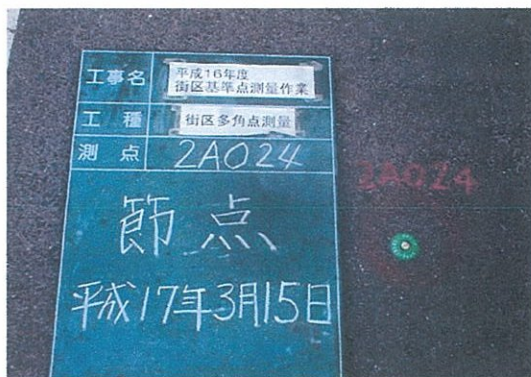 工事名 平成16年度
街区基準点測量作業
工種 街区多角点測量
測点 2A024
節点
平成17年3月15日
2A024